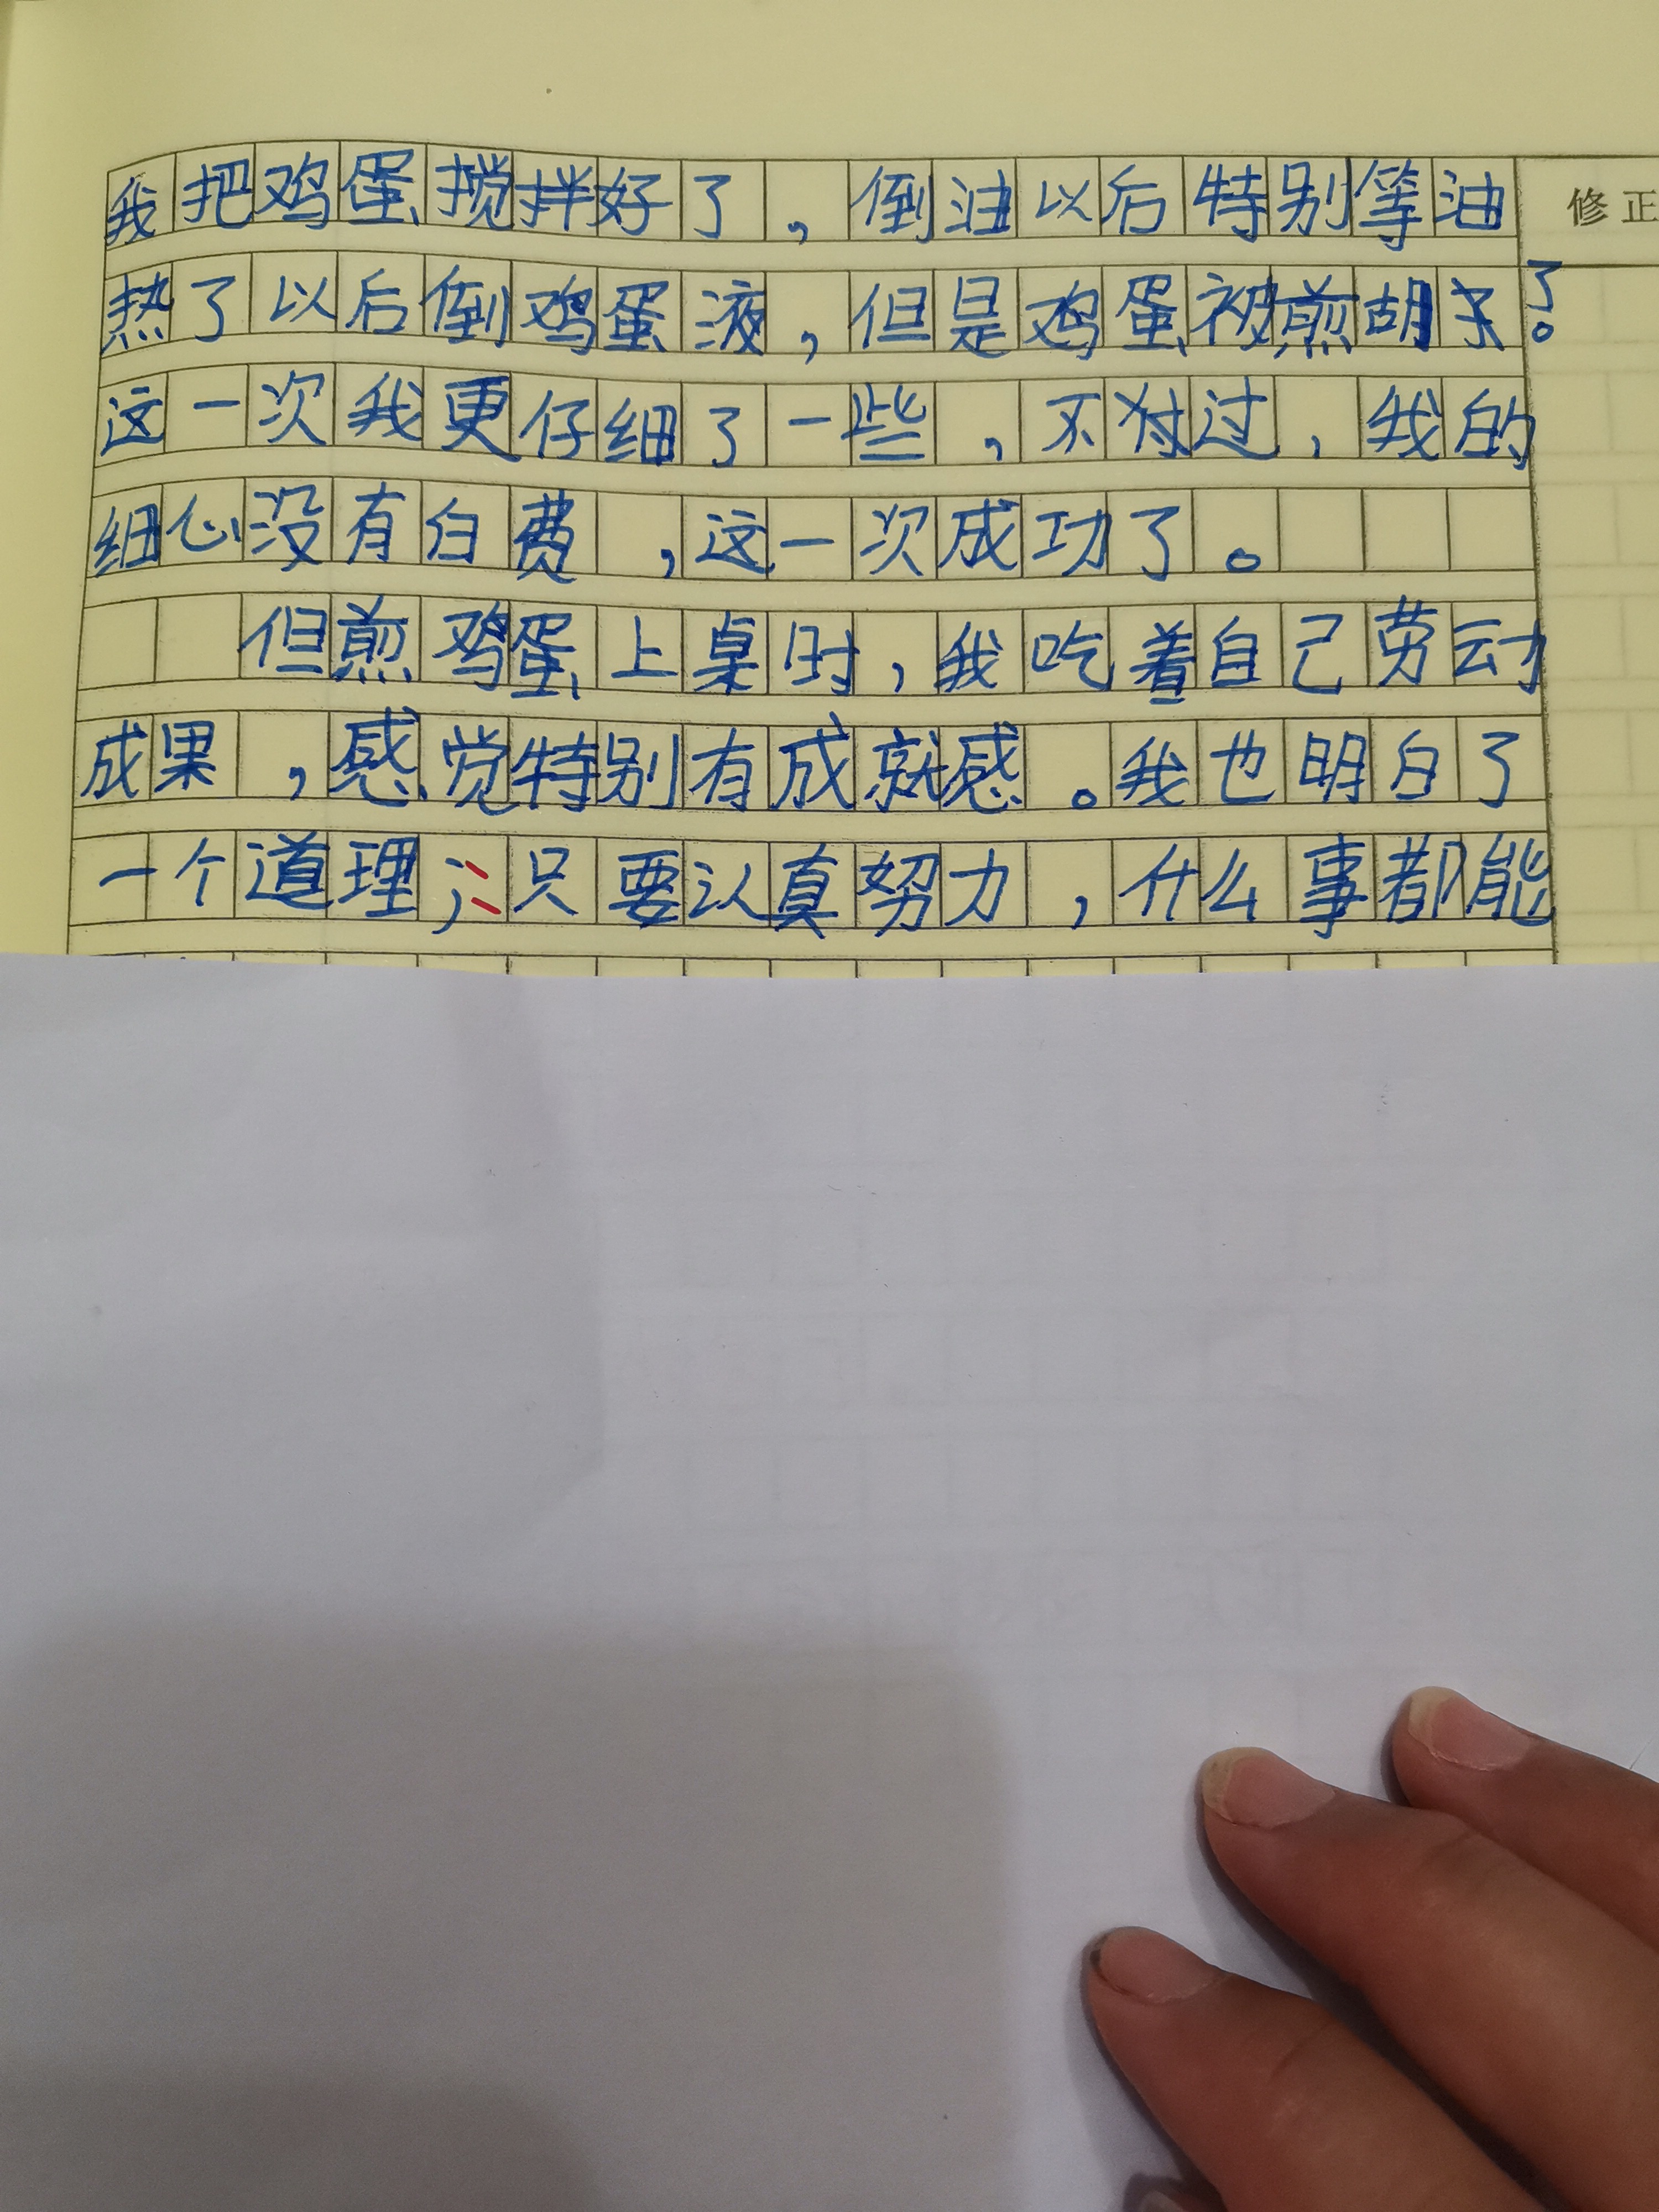 我把鸡蛋搅拌好了，倒油以后特别等油
修正
热了以后倒鸡蛋液，但是鸡蛋被煎胡了。
这一次我更仔细了一些，不对过，我的
细心没有白费，这一次成功了。
但煎鸡蛋上桌时，我吃着自己劳动
成果，感觉特别有成就感。我也明白了
一个道理；：只要认真努力，什么事都能